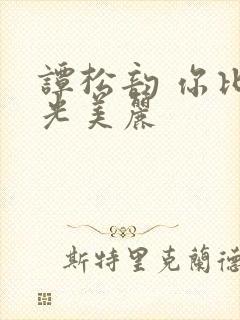 譚松韵 你比
光美麗
斯特里克蘭德